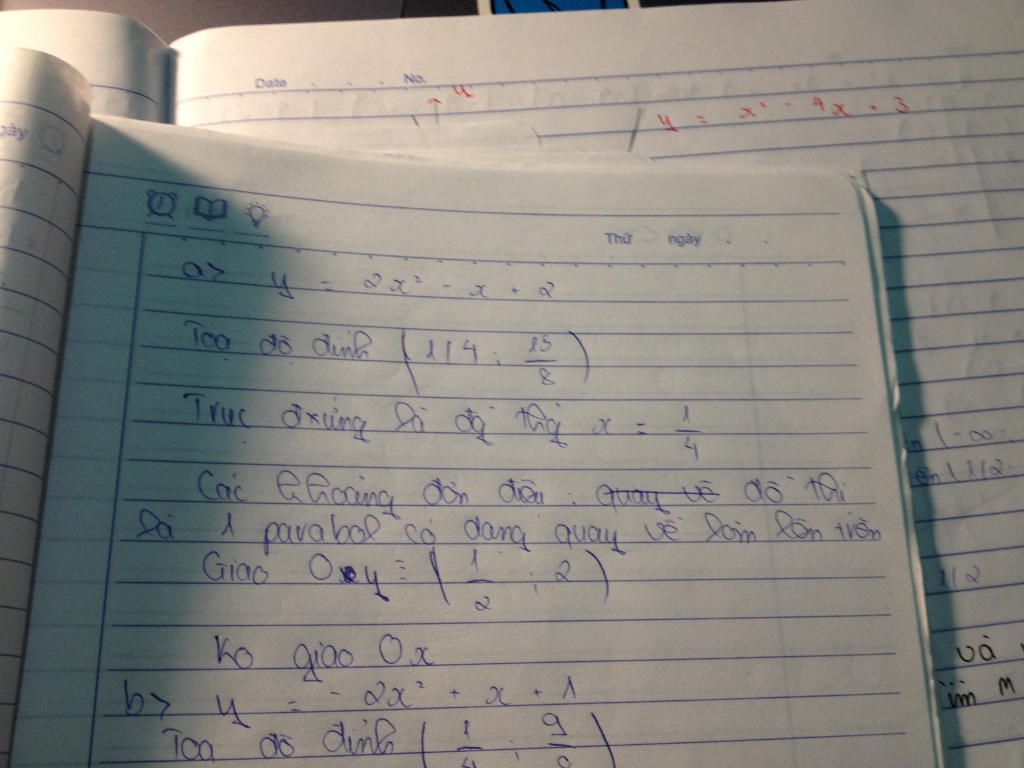 Date No.
y
y = x² - 4x + 3
ngày
Thứ ngày
a> y = 2x² - x + 2
Toạ độ đỉnh ( 1/4 ; 15/8 )
Trục đxứng là đg thg x = 1/4
Các khoảng đơn điệu : quay về đồ thị
là 1 parabol có dạng quay về lõm lên trên
Giao Oy = ( 1/2 ; 2 )
Ko giao Ox
b> y = -2x² + x + 1
Toạ độ đỉnh ( 1/4 ; 9/8 )
(-∞
(1/2
1/2
và
ìm m